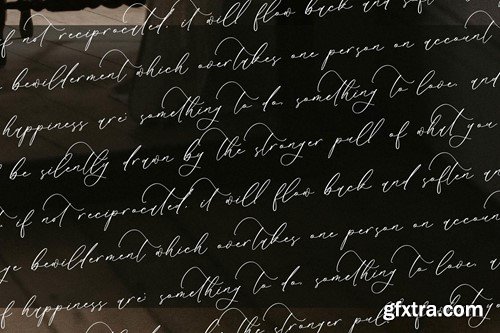 if not reciprocated, it will flow back and soft
e bewilderment which overtakes one person on account
happiness are: something to do, something to love, and
be silently drawn by the stronger pull of what you
if not reciprocated, it will flow back and soften an
ge bewilderment which overtakes one person on accoun
f happiness are: something to do, something to love, an
silently drawn by the stronger pull of
gfxtra.com